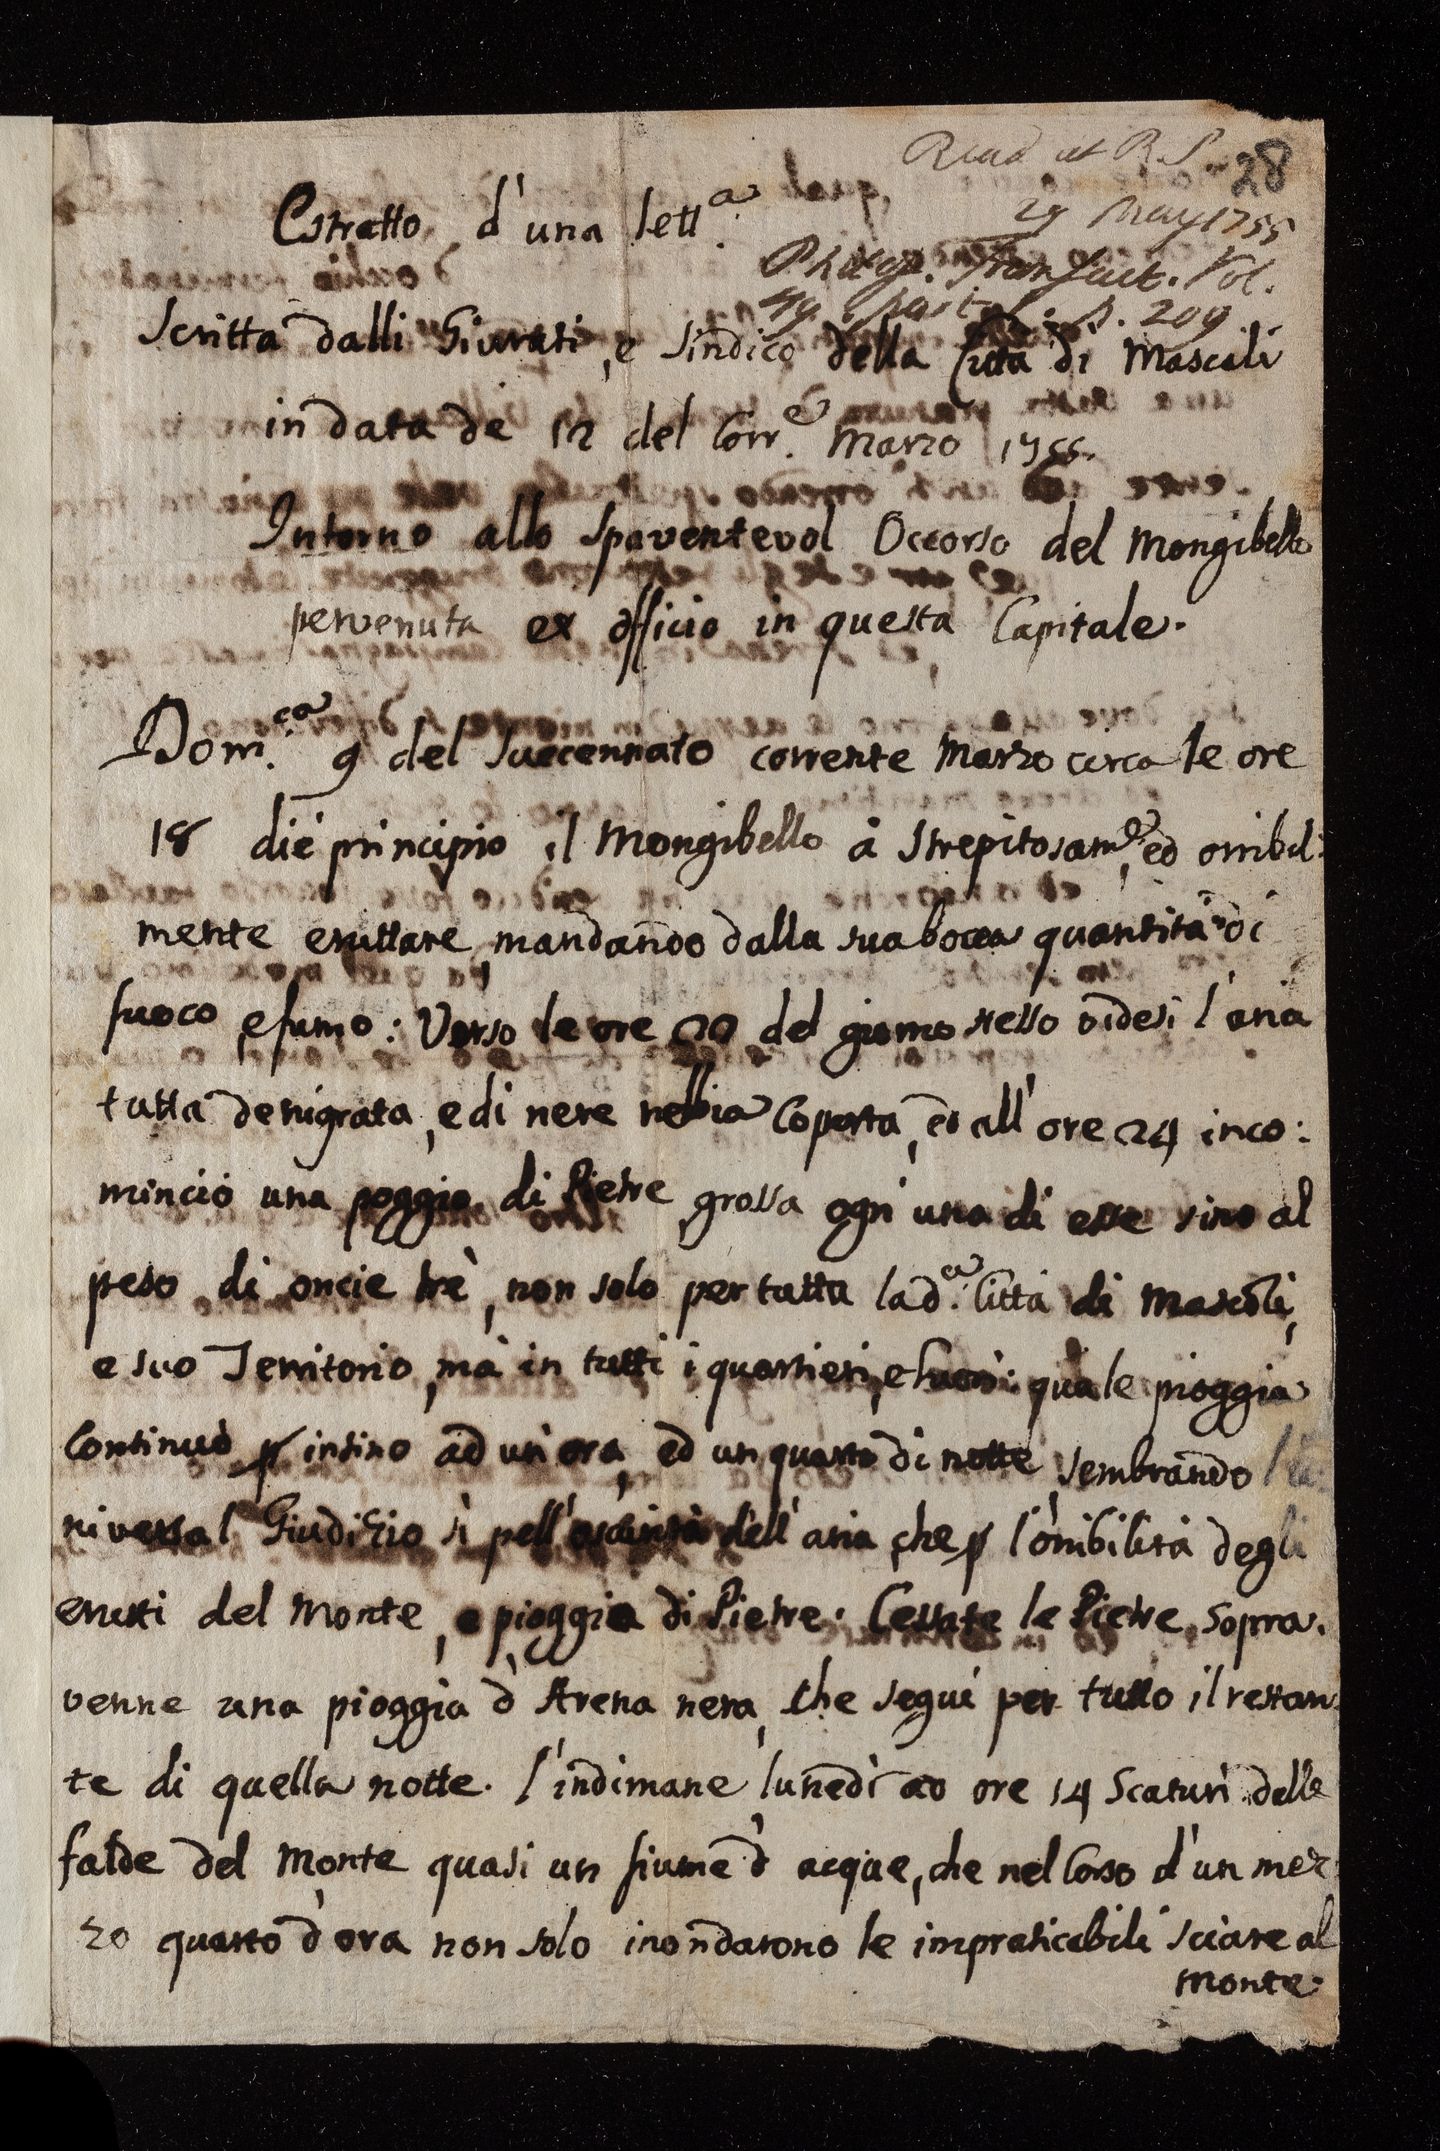 Read at R.S. 28
29 May 1755
Philos. Transact. Vol.
49. part 1. p. 209.
Estratto d'una lett.ª
scritta dalli Giurati, e Sindico della Città di Mascali
in data de 12 del Corr.e Marzo 1755.
Intorno allo Spaventevol Occorso del Mongibello
pervenuta ex officio in questa Capitale.
Dom.ca 9 del suecennato corrente Marzo circa le ore
18 diè principio il Mongibello à strepitosam.e, ed orribil:
mente eruttare, mandando dalla sua bocca quantità di
fuoco, e fumo: Verso le ore 22 del giorno stesso videsi l'aria
tutta denigrata, e di nere nebbia coperta, ed all'ore 24 inco:
minciò una poggia di Pietre, grossa ogn'una di esse sino al
peso di oncie trè, non solo per tutta la d.ª Città di Mascali,
e suo Territorio, mà in tutti i quartieri, e fuori: quale pioggia
continuò p insino ad un'ora, ed un quarto di notte, sembrando l'u:
niversal Giudizio sì pell'oscurità dell'aria, che p l'orribilità degli
erutti del Monte, e pioggia di Pietre. Cessate le Pietre, sopra.
venne una pioggia d'Arena nera, che seguì per tutto il restan
te di quella notte. l'indimane lunedì ad ore 14 Scaturì dalle
falde del Monte quasi un fiume d'acque, che nel Corso d'un mez
zo quarto d'ora non solo inondarono le impraticabili sciare al
Monte.